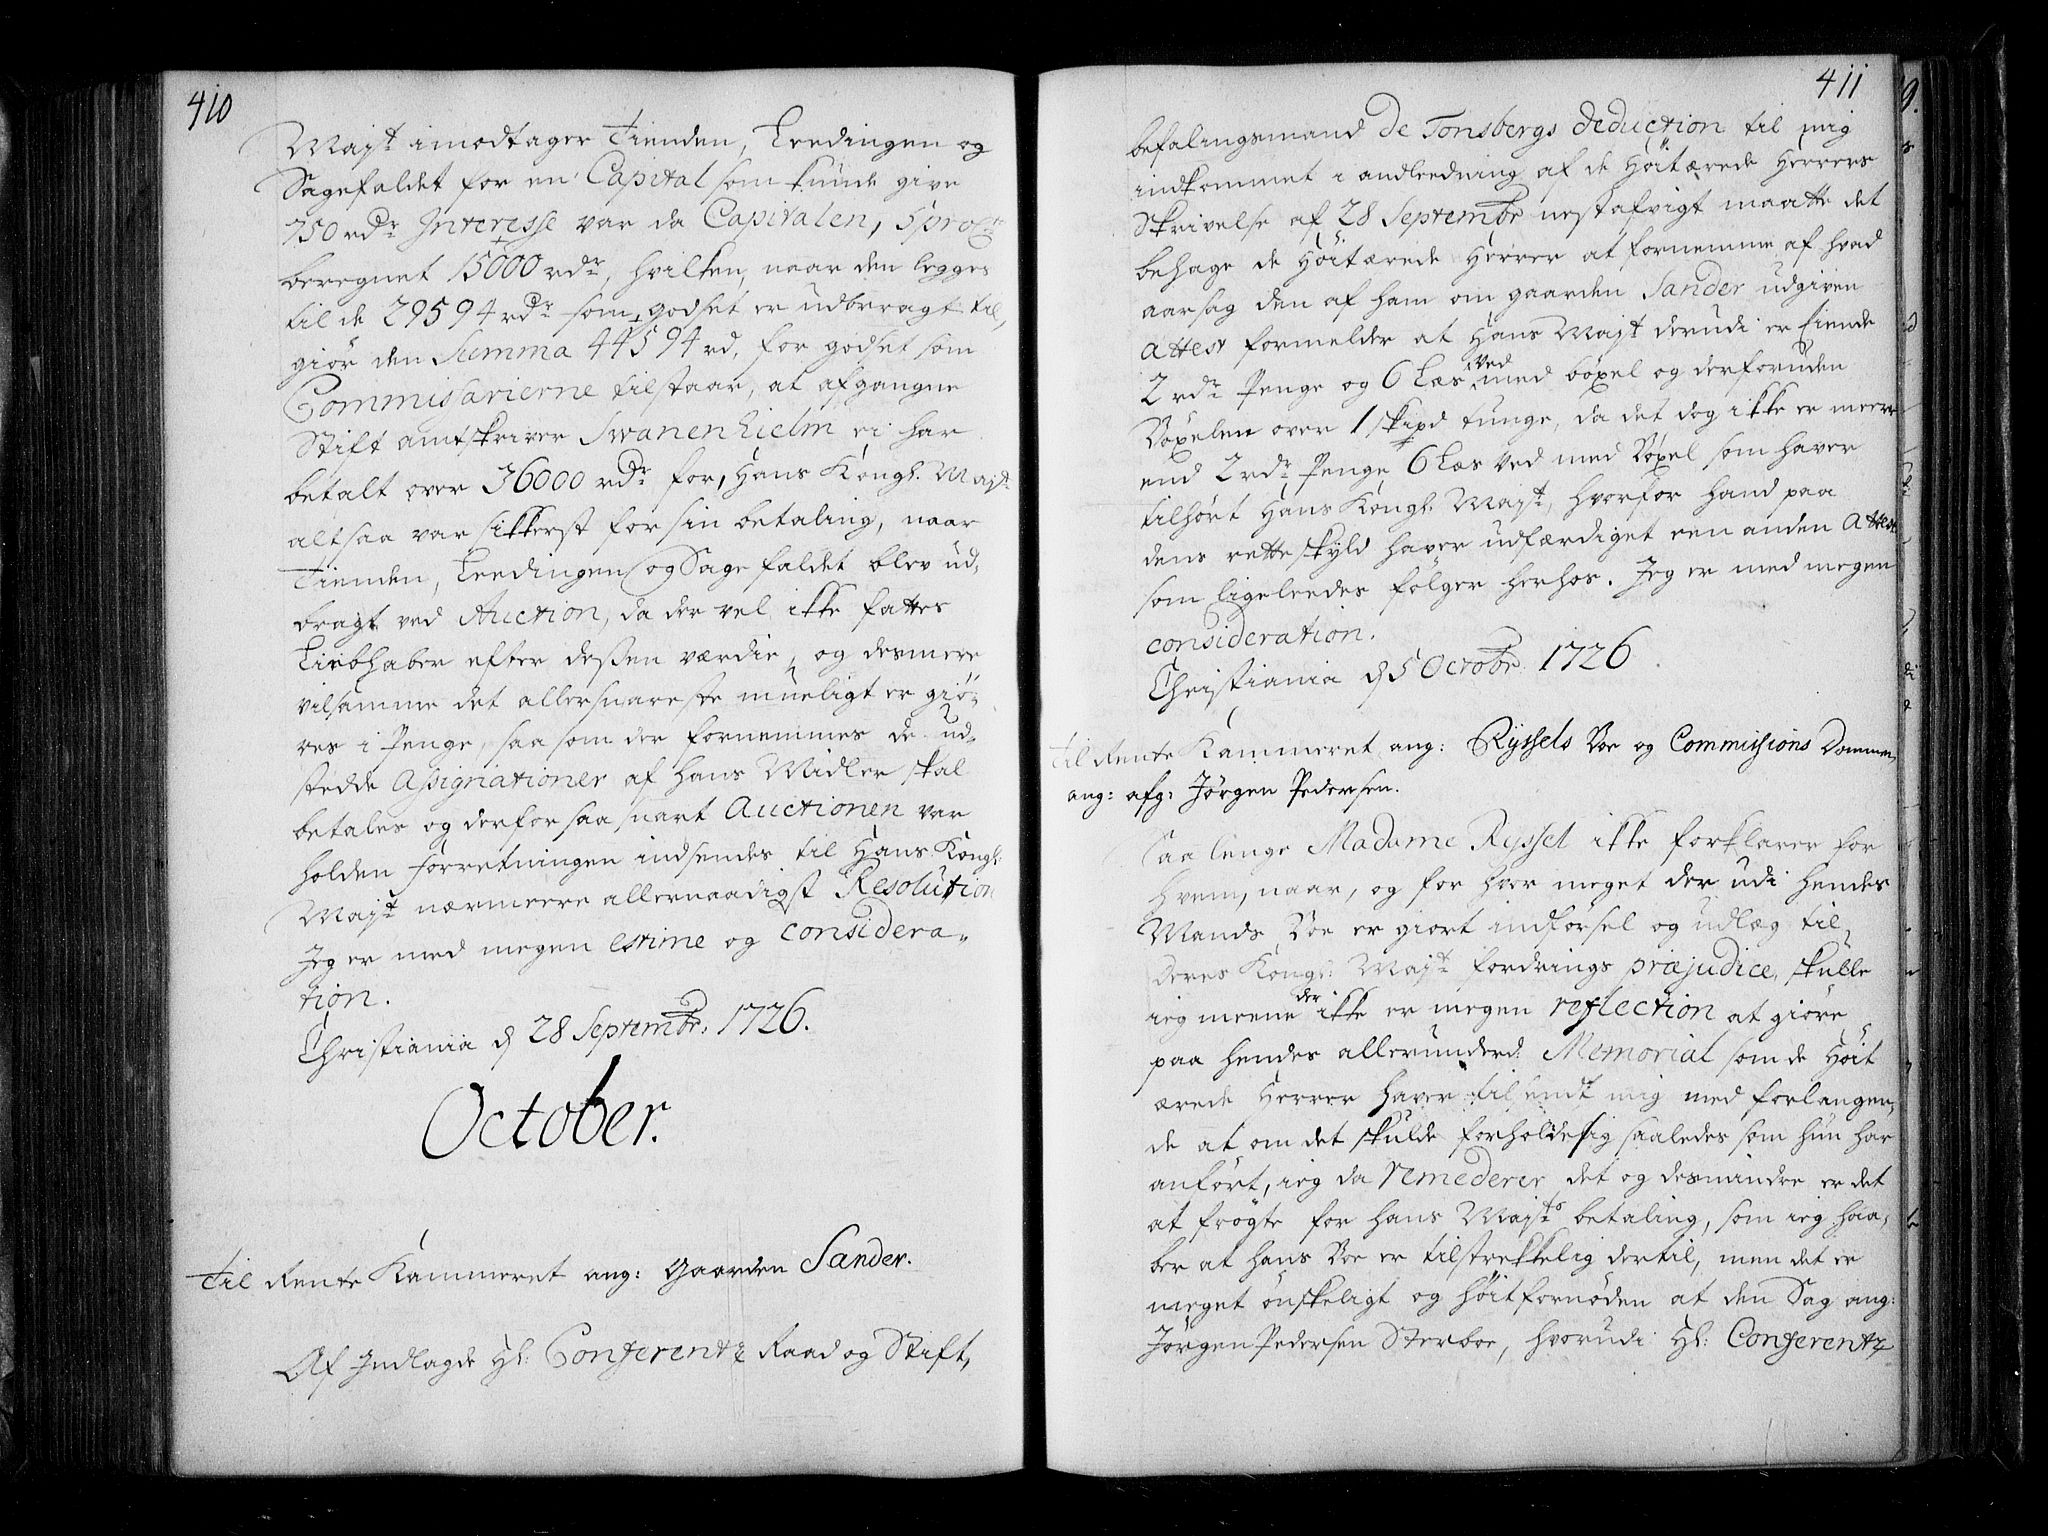 410
Majt. imodtager Tienden, Leedingen og
Sagefaldet for en Capital som kunde give
750 rdr. Interesse var da Capitalen, 5 proct.
beregnet 15000 rdr., hvilken, naar den legges
til de 29594 rdr. som godset er udbragt til,
giør den Summa 44594 rd. for godset som
Commisarierne tilstaar, at afgangne
Stift amtskriver Swanenhielm ei har
betalt over 36000 rdr. for, Hans Kongl. Majt.
altsaa var sikkerst for sin betaling, naar
Tienden, Leedingen og Sagefaldet blev ud-
bragt ved Auction, da der vel ikke fattes
Liebhaber efter dessen værdie, og desmere
vil samme det allersnareste mueligt er giø-
res i Penge, saasom der fornemmes de ud-
stedde Assignationer af hans Midler skal
betales og derfor saa snart Auctionen var
holden forretningen indsendes til Hans Kongl:
Majt. nærmeere allernaadigst Resolution
Jeg er med megen estime og considera-
tion.
Christiania d 28 Septembr: 1726.
October.
Til Rente Kammeret ang: Gaarden Sander.
Af Indlagde Hl: Conferentz Raad og Stift,
411
befalingsmand De Tonsbergs deduction til mig
indkommet i andleedning af de Høitærede Herrers
Skrivelse af 28 Septembr nestafvigt maatte det
behage de Høitærede Herrer at fornemme af hvad
aarsag den af ham om gaarden Sander udgiven
Attest formelder at Hans Majt derudi er Eiende
2 rdr. Penge og 6 Læs ved med bøxel og derforuden
Bøxelen over 1 skipd tunge, da det dog ikke er meere
end 2 rdr. Penge 6 Læs Ved med Bøxel som haver
tilhørt Hans Kongl: Majt., hvorfor hand paa
dens rette skyld haver udfærdiget een anden Attest
som ligeleedes følger herhos. Jeg er med megen
consideration.
Christiania d 5 Octobr. 1726.
Til Rente Kammeret ang: Ryssels Boe og Commissions Dommen,
ang: afg: Jørgen Pedersen.
Saa lenge Madame Ryssel ikke forklarer for
hvem, naar, og for hvor meget der udi hendes
Mands Boe er giort indførsel og udlæg til
Deres Kongl: Majt. fordrings præjudice, skulle
ieg meene der ikke er megen reflection at giøre
paa hendes allerunderd: Memorial som de Høit
ærede Herrer haver tilsendt mig med forlangen,
de at om det skulde forholde sig saaledes som hun har
anført, ieg da remederer det og desmindre er det
at frøgte for Hans Majts. betaling, som ieg haa,
ber at hans Boe er tilstrekkelig dertil, men det er
meget ønskeligt og høitfornøden at den Sag ang:
Jørgen Pedersen Sterboe, hvorudi Hl: Conferentz